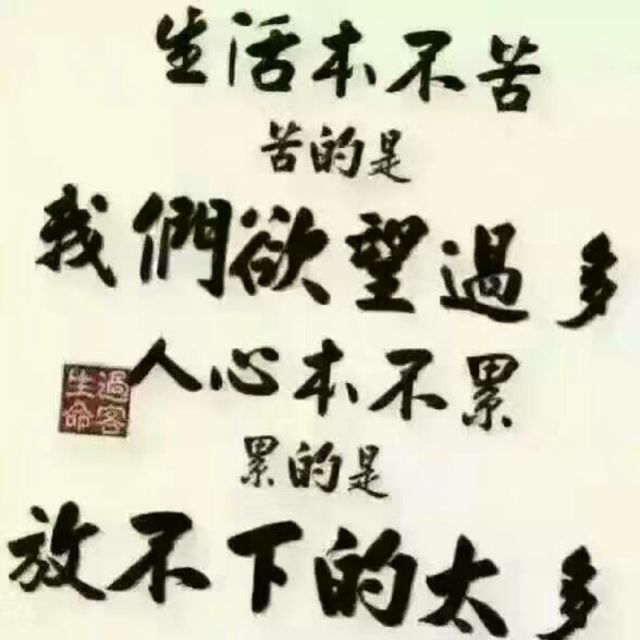 生活本不苦
苦的是
我們欲望過多
人心本不累
累的是
放不下的太多
過客
生命